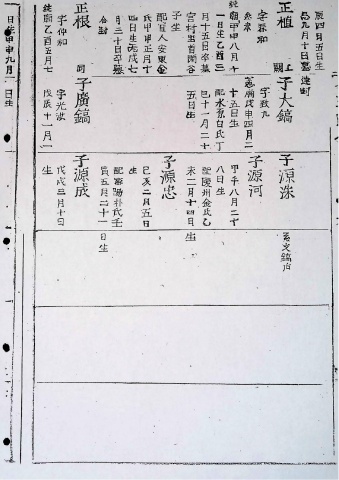 辰四月五日生
忌九月十日墓達城
正植
字春和
純廟甲申八月十
月十五日卒墓
宮村里首岡谷
子生
配宜人安東金
氏甲申正月十
四日生
月三十日卒墓
合封
正根
字仲和
純廟乙酉五月七
日生甲申九月二日生
子大鎬
字致九
憲廟戊申四月二
十五日生
配水原白氏丁
一日生乙酉三
巳十一月二十
五日生
子廣鎬
字光汝
戊辰十一月一
子源洙
系文鎬后
子源河
甲午八月二十
八日生
配慶州金氏乙
未二月十四日
生
子源忠
己亥二月五日
生
配密陽朴氏壬
寅五月二十一
日生
子源成
戊戌三月十日
生